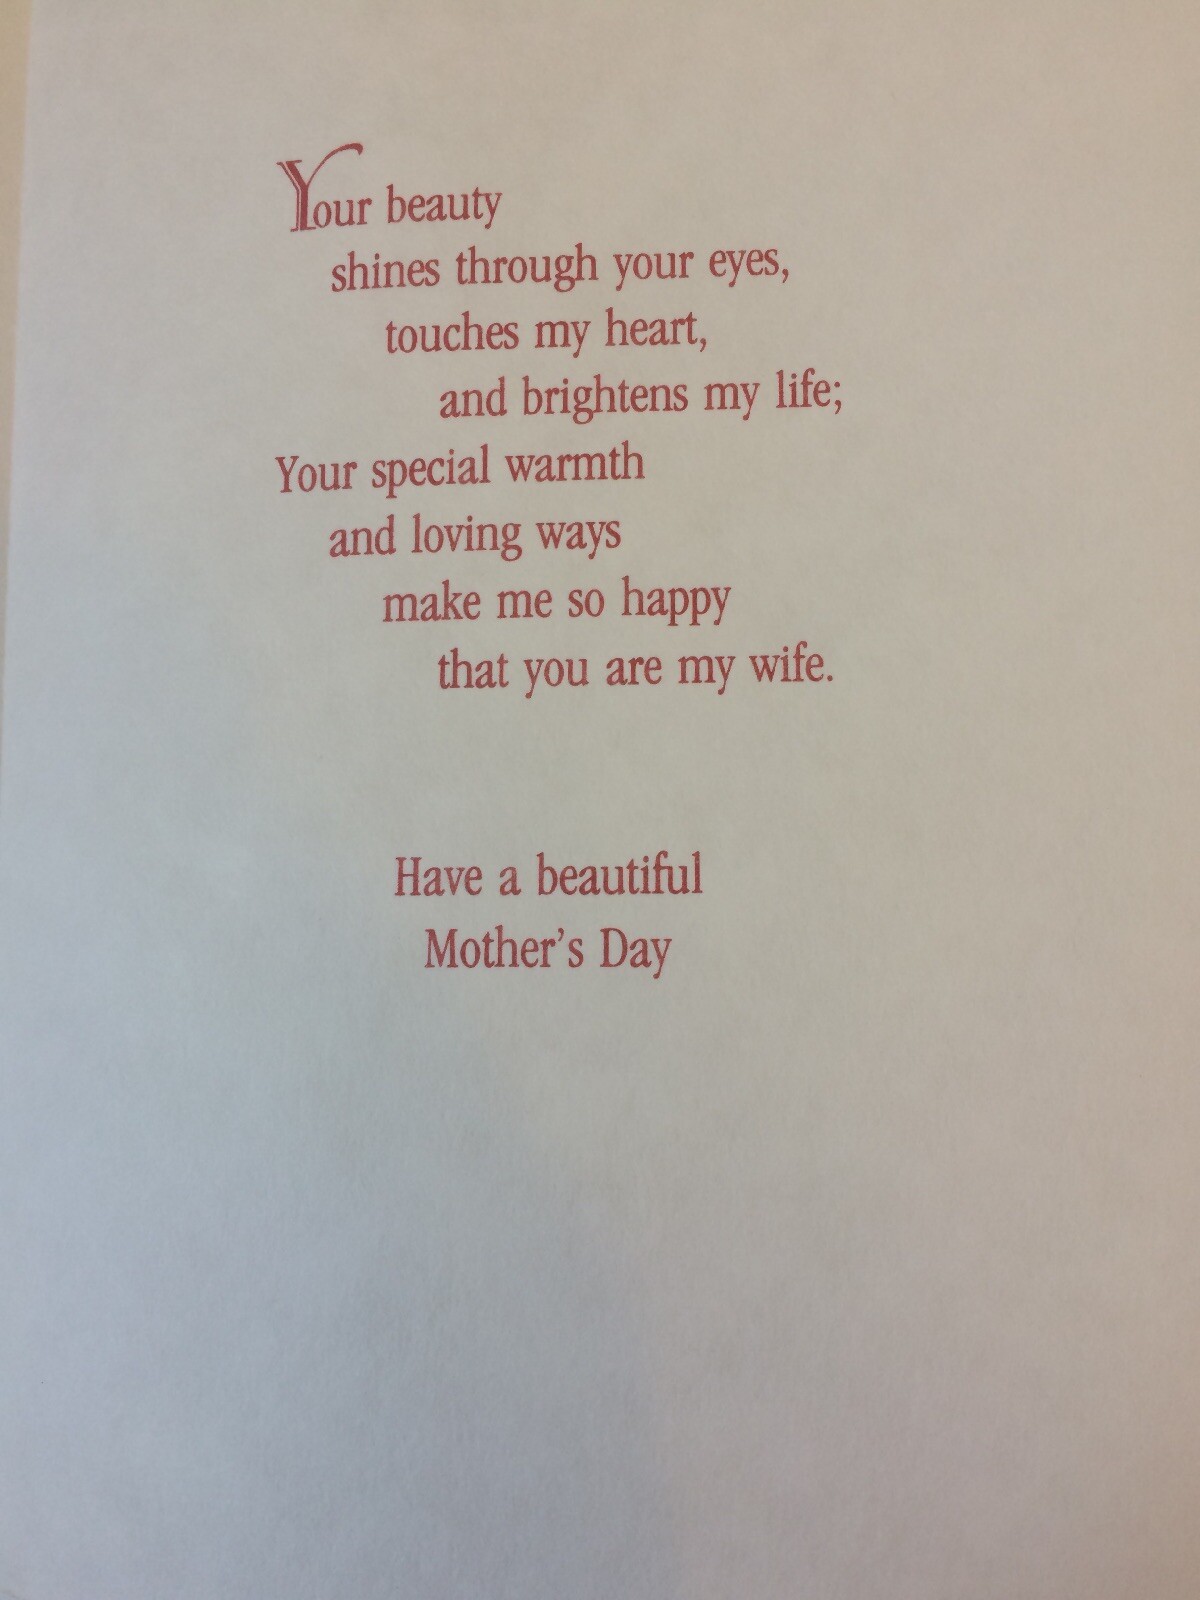 Your beauty
shines through your eyes,
touches my heart,
and brightens my life;
Your special warmth
and loving ways
make me so happy
that you are my wife.
Have a beautiful
Mother's Day